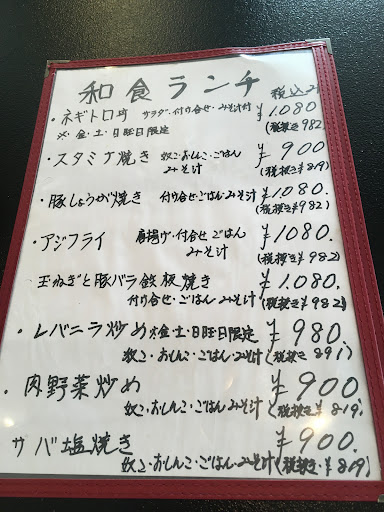 和食ランチ 税込み
・ネギトロ丼 サラダ・付け合せ・みそ汁付 ¥1.080
※金・土・日旺日限定 (税抜き982)
・スタミナ焼き 奴こ・おしんこ・ごはん ¥900
みそ汁 (税抜き¥819)
・豚しょうが焼き 付け合せ・ごはん・みそ汁 ¥1080.
(税抜き¥982)
・アジフライ 唐揚げ・付合せ ごはん ¥1080.
みそ汁 (税抜き¥982)
玉ねぎと豚バラ鉄板焼き ¥1.080.
付け合せ・ごはん みそ汁 (税抜き¥982)
・レバニラ炒め ※金・土・日旺日限定 ¥980.
奴こ・おしんこ・ごはん・みそ汁 (税抜き891)
・肉野菜炒め ¥900
奴こ・おしんこ・ごはん みそ汁 (税抜き¥819)
サバ塩焼き ¥900.
奴こ・おしんこ・ごはん・みそ汁 (税抜き・¥819)